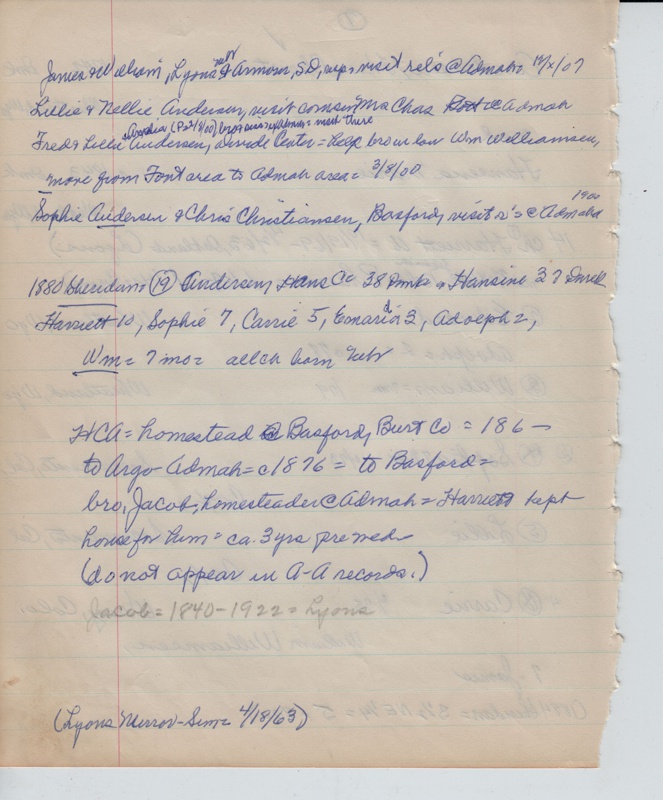 James & William, Lyons Nebr & Armour, SD, resp, visit rel's @ Admah = 12/X/07
Lillie & Nellie Andersen, visit cousin Mrs Chas @ Admah
Cordelia (P 2/8/00) bro & sis = meet there
Fred & Lillie Andersen, Center = help bro in law Wm Williamsen,
move from Font area to Admah area = 3/8/00
Sophie Andersen & Chris Christiansen, Basford, visit r's @ Admah 1900
1880 Sheridan = (19) Andersen, Hans C 38 Dmk & Hansine 37 Dmk
Harriett 10, Sophie 7, Carrie 5, Emaria 3, Adolph 2,
Wm = 7 mo = all ch born Nebr
HCA = homestead @ Basford, Burt Co = 186–
to Argo-Admah = c1876 = to Basford =
bro, Jacob, homesteader @ Admah = Harriett kept
house for him = ca. 3 yrs pre wed
(do not appear in A-A records.)
Jacob = 1840-1922 = Lyons
(Lyons Mirror-Sun = 4/18/63)